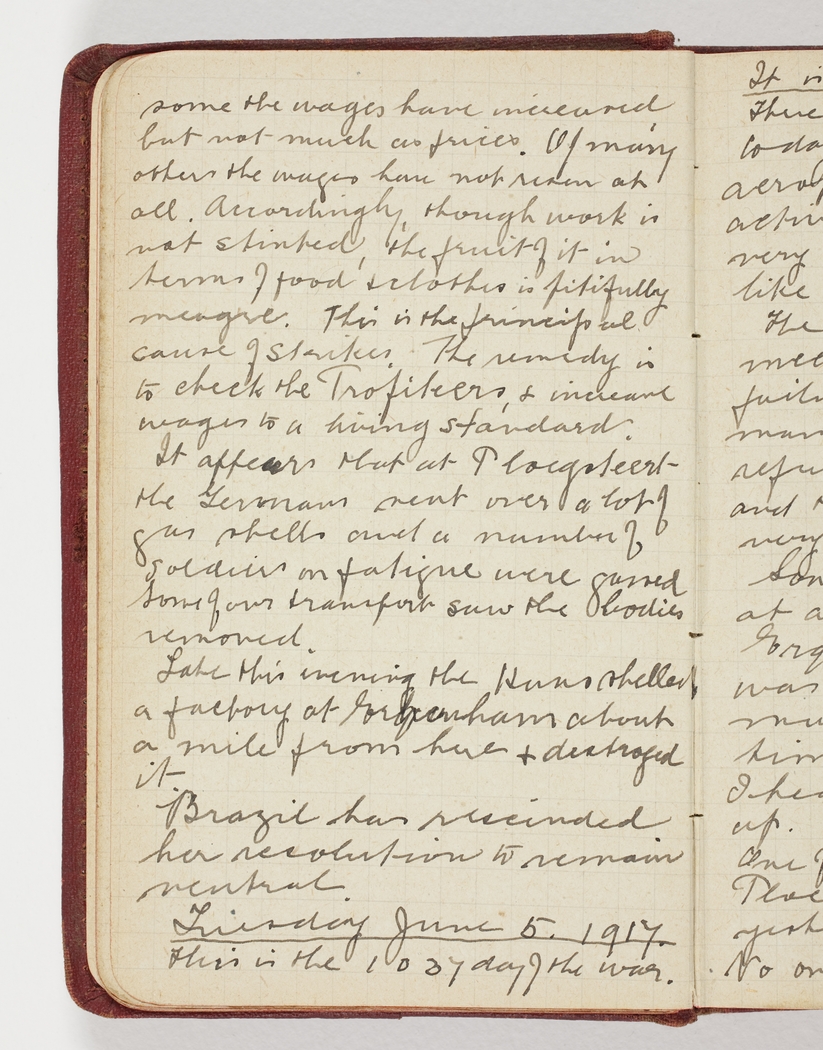 some the wages have increased
but not much as prices. Of many
others the wages have not risen at
all. Accordingly, though work is
not stinted, the fruit of it in
terms of food & clothes is pitifully
meagre. This is the principal
cause of strikes. The remedy is
to check the Profiteers, & increase
wages to a living standard.
It appears that at Ploegsteert
the Germans sent over a lot of
gas shells and a number of
soldiers on fatigue were gassed
Some of our transport saw the bodies
removed.
Late this evening the Huns shelled
a factory at Erquinham about
a mile from here & destroyed
it.
Brazil has rescinded
her resolution to remain
neutral.
Tuesday June 5. 1917.
This is the 1037 day of the war.
It is
There
to da
aero
activ
very
like
The
mee
failu
man
refu
and t
very
Som
at a
Erq
was
mu
tim
I hea
up.
One
Ploe
yest
No on